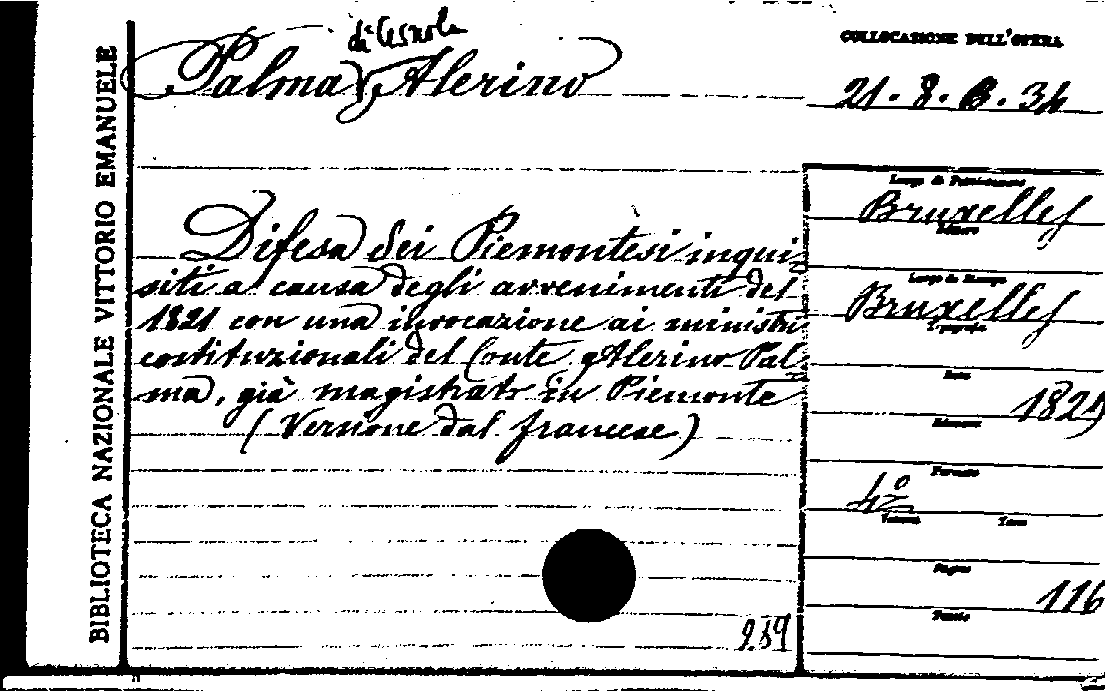 BIBLIOTECA NAZIONALE VITTORIO EMANUELE
di Cesnola
Palma, Alerino
COLLOCAZIONE DELL'OPERA
21. 8. B. 34
Difesa dei Piemontesi inqui-
siti a causa degli avvenimenti del
1821 con una invocazione ai ministri
costituzionali del Conte Alerino Pal-
ma, già magistrato in Piemonte
(Versione dal francese)
Luogo di Pubblicazione
Bruxelles
Editore
Luogo di Stampa
Bruxelles
Tipografia
Data
1829
Edizione
Formato
4º
Volumi
Tomi
Pagine
116
989